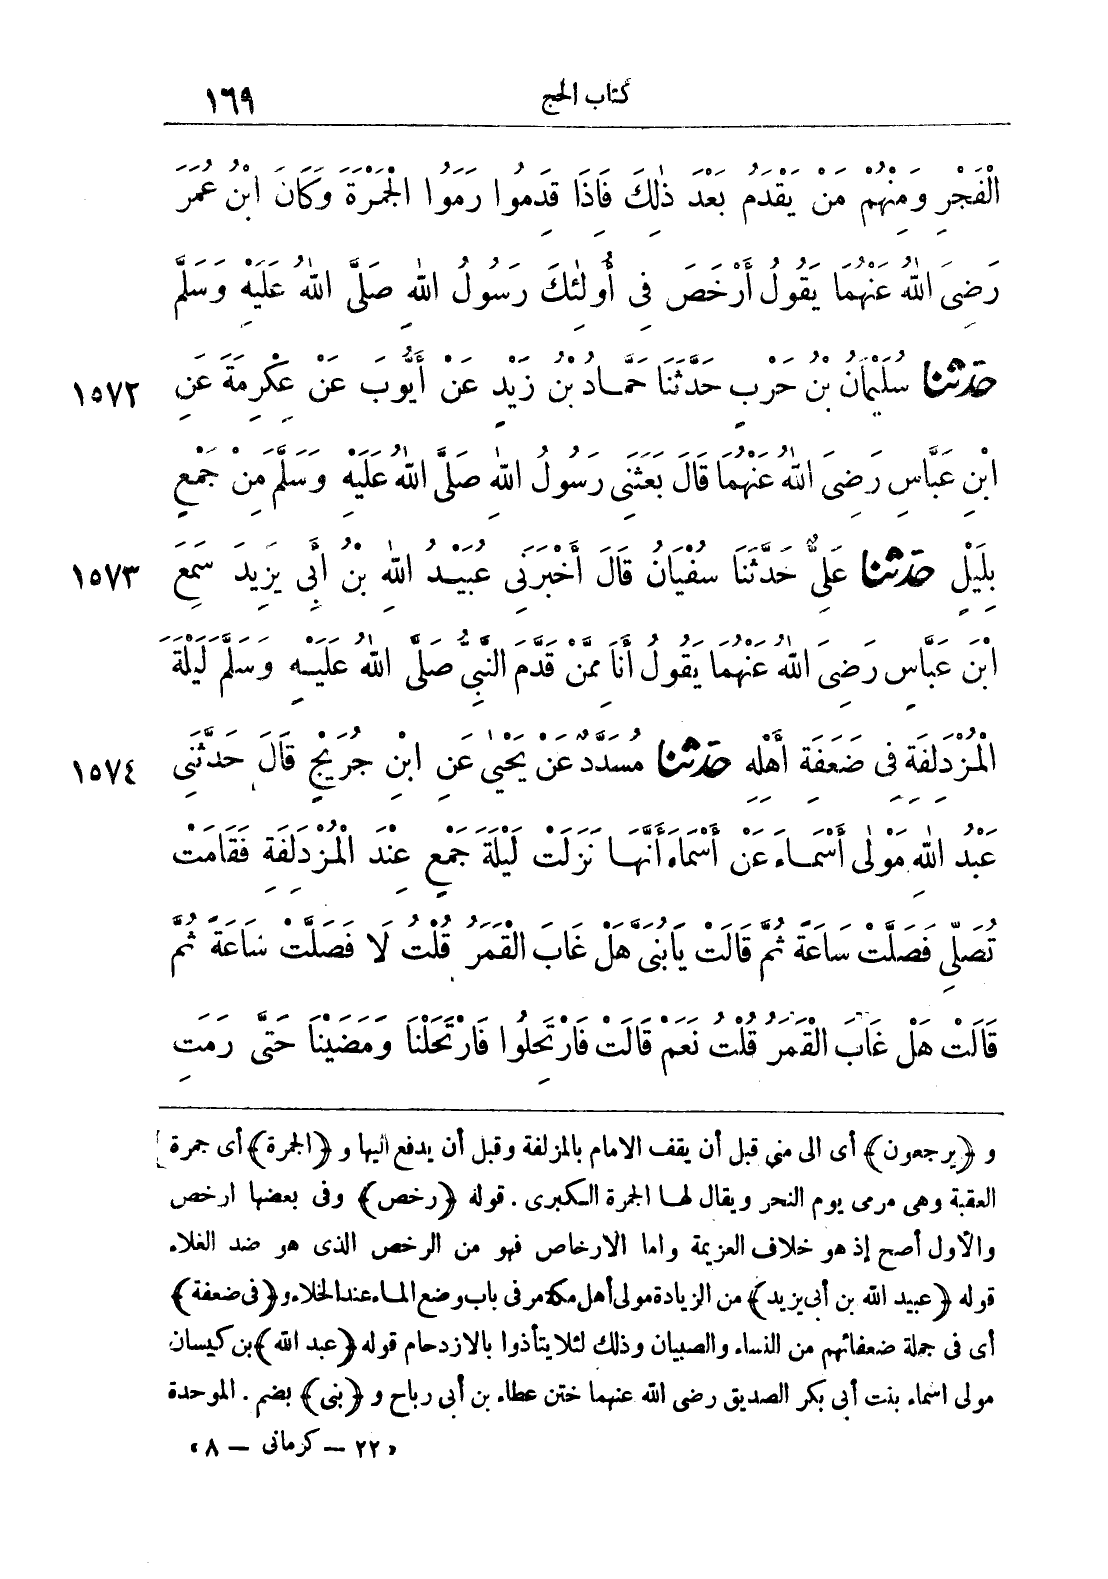 كتاب الحج ١٦٩
الْفَجْرِ وَمِنْهُمْ مَنْ يَقْدَمُ بَعْدَ ذٰلِكَ فَاِذَا قَدِمُوا رَمَوُا الْجَمْرَةَ وَكَانَ ابْنُ عُمَرَ
رَضِىَ اللهُ عَنْهُمَا يَقُولُ أَرْخَصَ فِى أُولٰئِكَ رَسُولُ اللهِ صَلَّى اللهُ عَلَيْهِ وَسَلَّمَ
١٥٧٢ حَدَّثَنَا سُلَيْمَانُ بْنُ حَرْبٍ حَدَّثَنَا حَمَّادُ بْنُ زَيْدٍ عَنْ أَيُّوبَ عَنْ عِكْرِمَةَ عَنِ
ابْنِ عَبَّاسٍ رَضِىَ اللهُ عَنْهُمَا قَالَ بَعَثَنِى رَسُولُ اللهِ صَلَّى اللهُ عَلَيْهِ وَسَلَّمَ مِنْ جَمْعٍ
١٥٧٣ بِلَيْلٍ حَدَّثَنَا عَلِىٌّ حَدَّثَنَا سُفْيَانُ قَالَ أَخْبَرَنِى عُبَيْدُ اللهِ بْنُ أَبِى يَزِيدَ سَمِعَ
ابْنَ عَبَّاسٍ رَضِىَ اللهُ عَنْهُمَا يَقُولُ أَنَا مِمَّنْ قَدَّمَ النَّبِىُّ صَلَّى اللهُ عَلَيْهِ وَسَلَّمَ لَيْلَةَ
١٥٧٤ الْمُزْدَلِفَةِ فِى ضَعَفَةِ أَهْلِهِ حَدَّثَنَا مُسَدَّدٌ عَنْ يَحْيٰى عَنِ ابْنِ جُرَيْجٍ قَالَ حَدَّثَنِى
عَبْدُ اللهِ مَوْلٰى أَسْمَاءَ عَنْ أَسْمَاءَ أَنَّهَا نَزَلَتْ لَيْلَةَ جَمْعٍ عِنْدَ الْمُزْدَلِفَةِ فَقَامَتْ
تُصَلِّى فَصَلَّتْ سَاعَةً ثُمَّ قَالَتْ يَابُنَىَّ هَلْ غَابَ الْقَمَرُ قُلْتُ لَا فَصَلَّتْ سَاعَةً ثُمَّ
قَالَتْ هَلْ غَابَ الْقَمَرُ قُلْتُ نَعَمْ قَالَتْ فَارْتَحِلُوا فَارْتَحَلْنَا وَمَضَيْنَا حَتَّى رَمَتِ
و ﴿يرجعون﴾ أى الى منى قبل أن يقف الامام بالمزلفة وقبل أن يدفع اليها و ﴿الجمرة﴾ أى جمرة
العقبة وهى مرمى يوم النحر ويقال لها الجمرة الكبرى . قوله ﴿رخص﴾ وفى بعضها ارخص
والأول أصح إذ هو خلاف العزيمة واما الارخاص فهو من الرخص الذى هو ضد الغلاء
قوله ﴿عبيد الله بن أبى يزيد﴾ من الزيادة مولى أهل مكة مر فى باب وضع الماء عند الخلاء و﴿فى ضعفة﴾
أى فى جملة ضعفائهم من النساء والصبيان وذلك لئلا يتأذوا بالازدحام قوله ﴿عبد الله﴾ بن كيسان
مولى اسماء بنت أبى بكر الصديق رضى الله عنهما ختن عطاء بن أبى رباح و ﴿بنى﴾ بضم . الموحدة
«٢٢ – كرمانى – ٨»